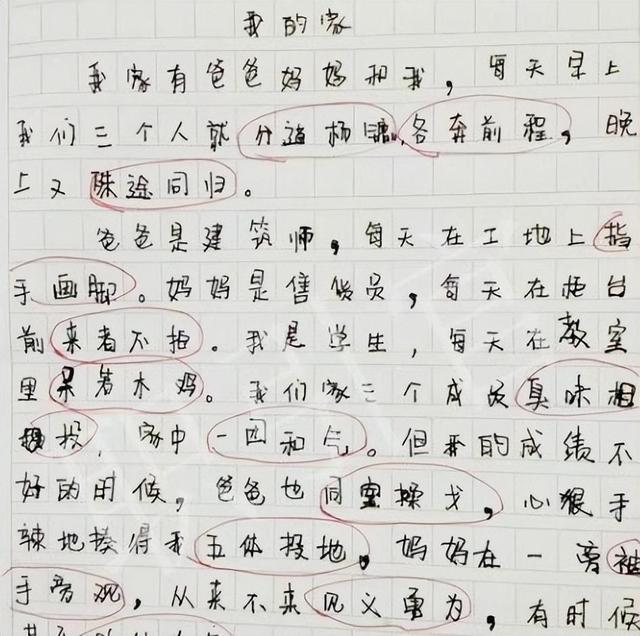 我的家
我家有爸爸妈妈和我，每天早上
我们三个人就分道扬镳，各奔前程，晚
上又殊途同归。
爸爸是建筑师，每天在工地上指
手画脚。妈妈是售货员，每天在柜台
前来者不拒。我是学生，每天在教室
里呆若木鸡。我们家三个成员臭味相
投，家中一团和气。但我的成绩不
好的时候，爸爸也同室操戈，心狠手
辣地揍得我五体投地，妈妈在一旁袖
手旁观，从来不来见义勇为，有时候